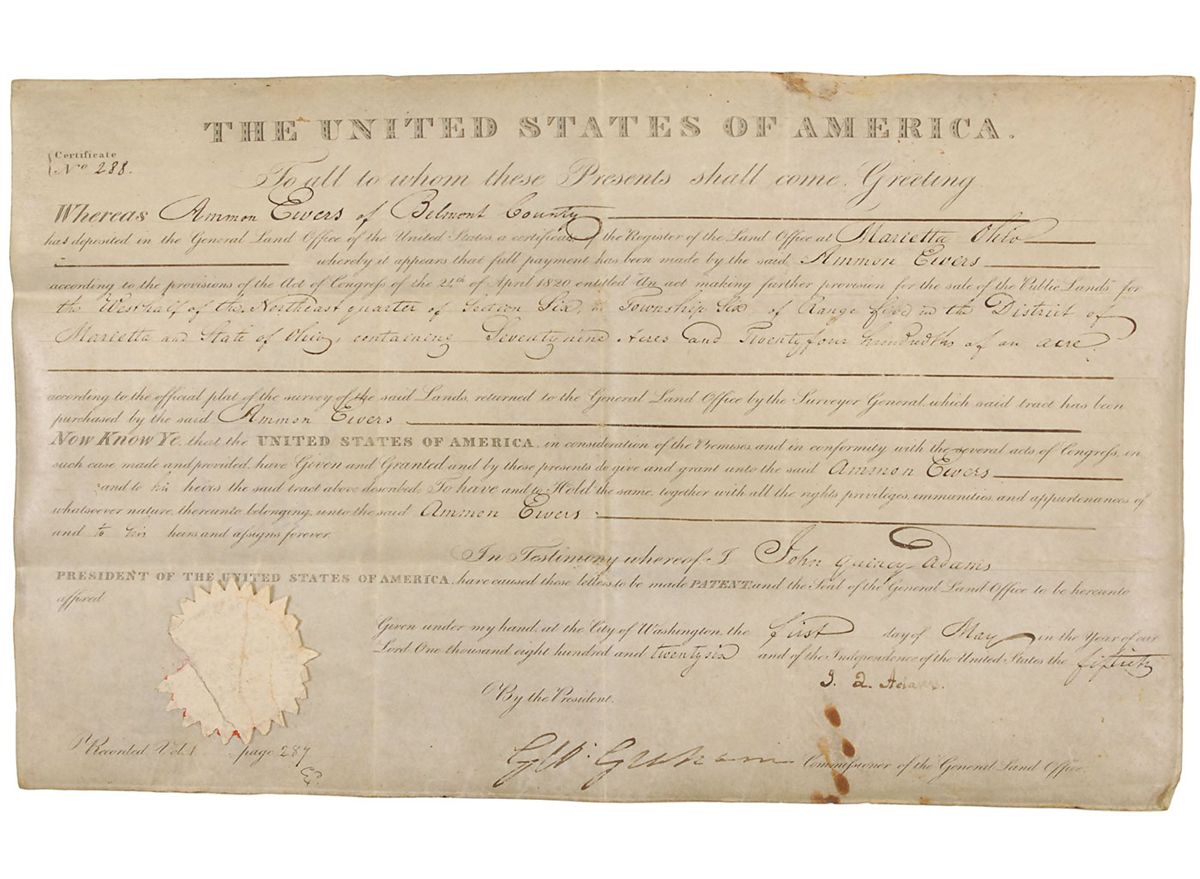 THE UNITED STATES OF AMERICA.
Certificate
No 288.
To all to whom these Presents shall come, Greeting
WHEREAS Ammon Ewers of Belmont County
has deposited in the General Land Office of the United States, a certificate of the Register of the Land Office at Marietta Ohio
whereby it appears that full payment has been made by the said Ammon Ewers
according to the provisions of the Act of Congress of the 24th of April 1820, entitled "An act making further provision for the sale of the Public Lands" for
the West half of the Northeast quarter of Section Six, in Township Six, of Range five in the District of
Marietta and State of Ohio, containing Seventy nine Acres and Twenty four hundredths of an acre.
according to the official plat of the survey of the said Lands, returned to the General Land Office by the Surveyor General, which said tract has been
purchased by the said Ammon Ewers
NOW KNOW YE, that the UNITED STATES OF AMERICA, in consideration of the Premises, and in conformity with the several acts of Congress, in
such case made and provided, have Given and Granted and by these presents do give and grant unto the said Ammon Ewers
and to his heirs the said tract above described; To have and to Hold the same, together with all the rights, priviliges, immunities, and appurtenances of
whatsoever nature, thereunto belonging, unto the said Ammon Ewers
and to his heirs and assigns forever.
In Testimony whereof I John Quincy Adams
PRESIDENT OF THE UNITED STATES OF AMERICA, have caused these letters to be made PATENT, and the Seal of the General Land Office to be hereunto
affixed
Given under my hand, at the City of Washington, the first day of May in the Year of our
Lord One thousand eight hundred and twenty six and of the Independence of the United States the fiftieth
J. Q. Adams.
By the President.
G W Graham Commissioner of the General Land Office.
Recorded Vol. 1 page 287